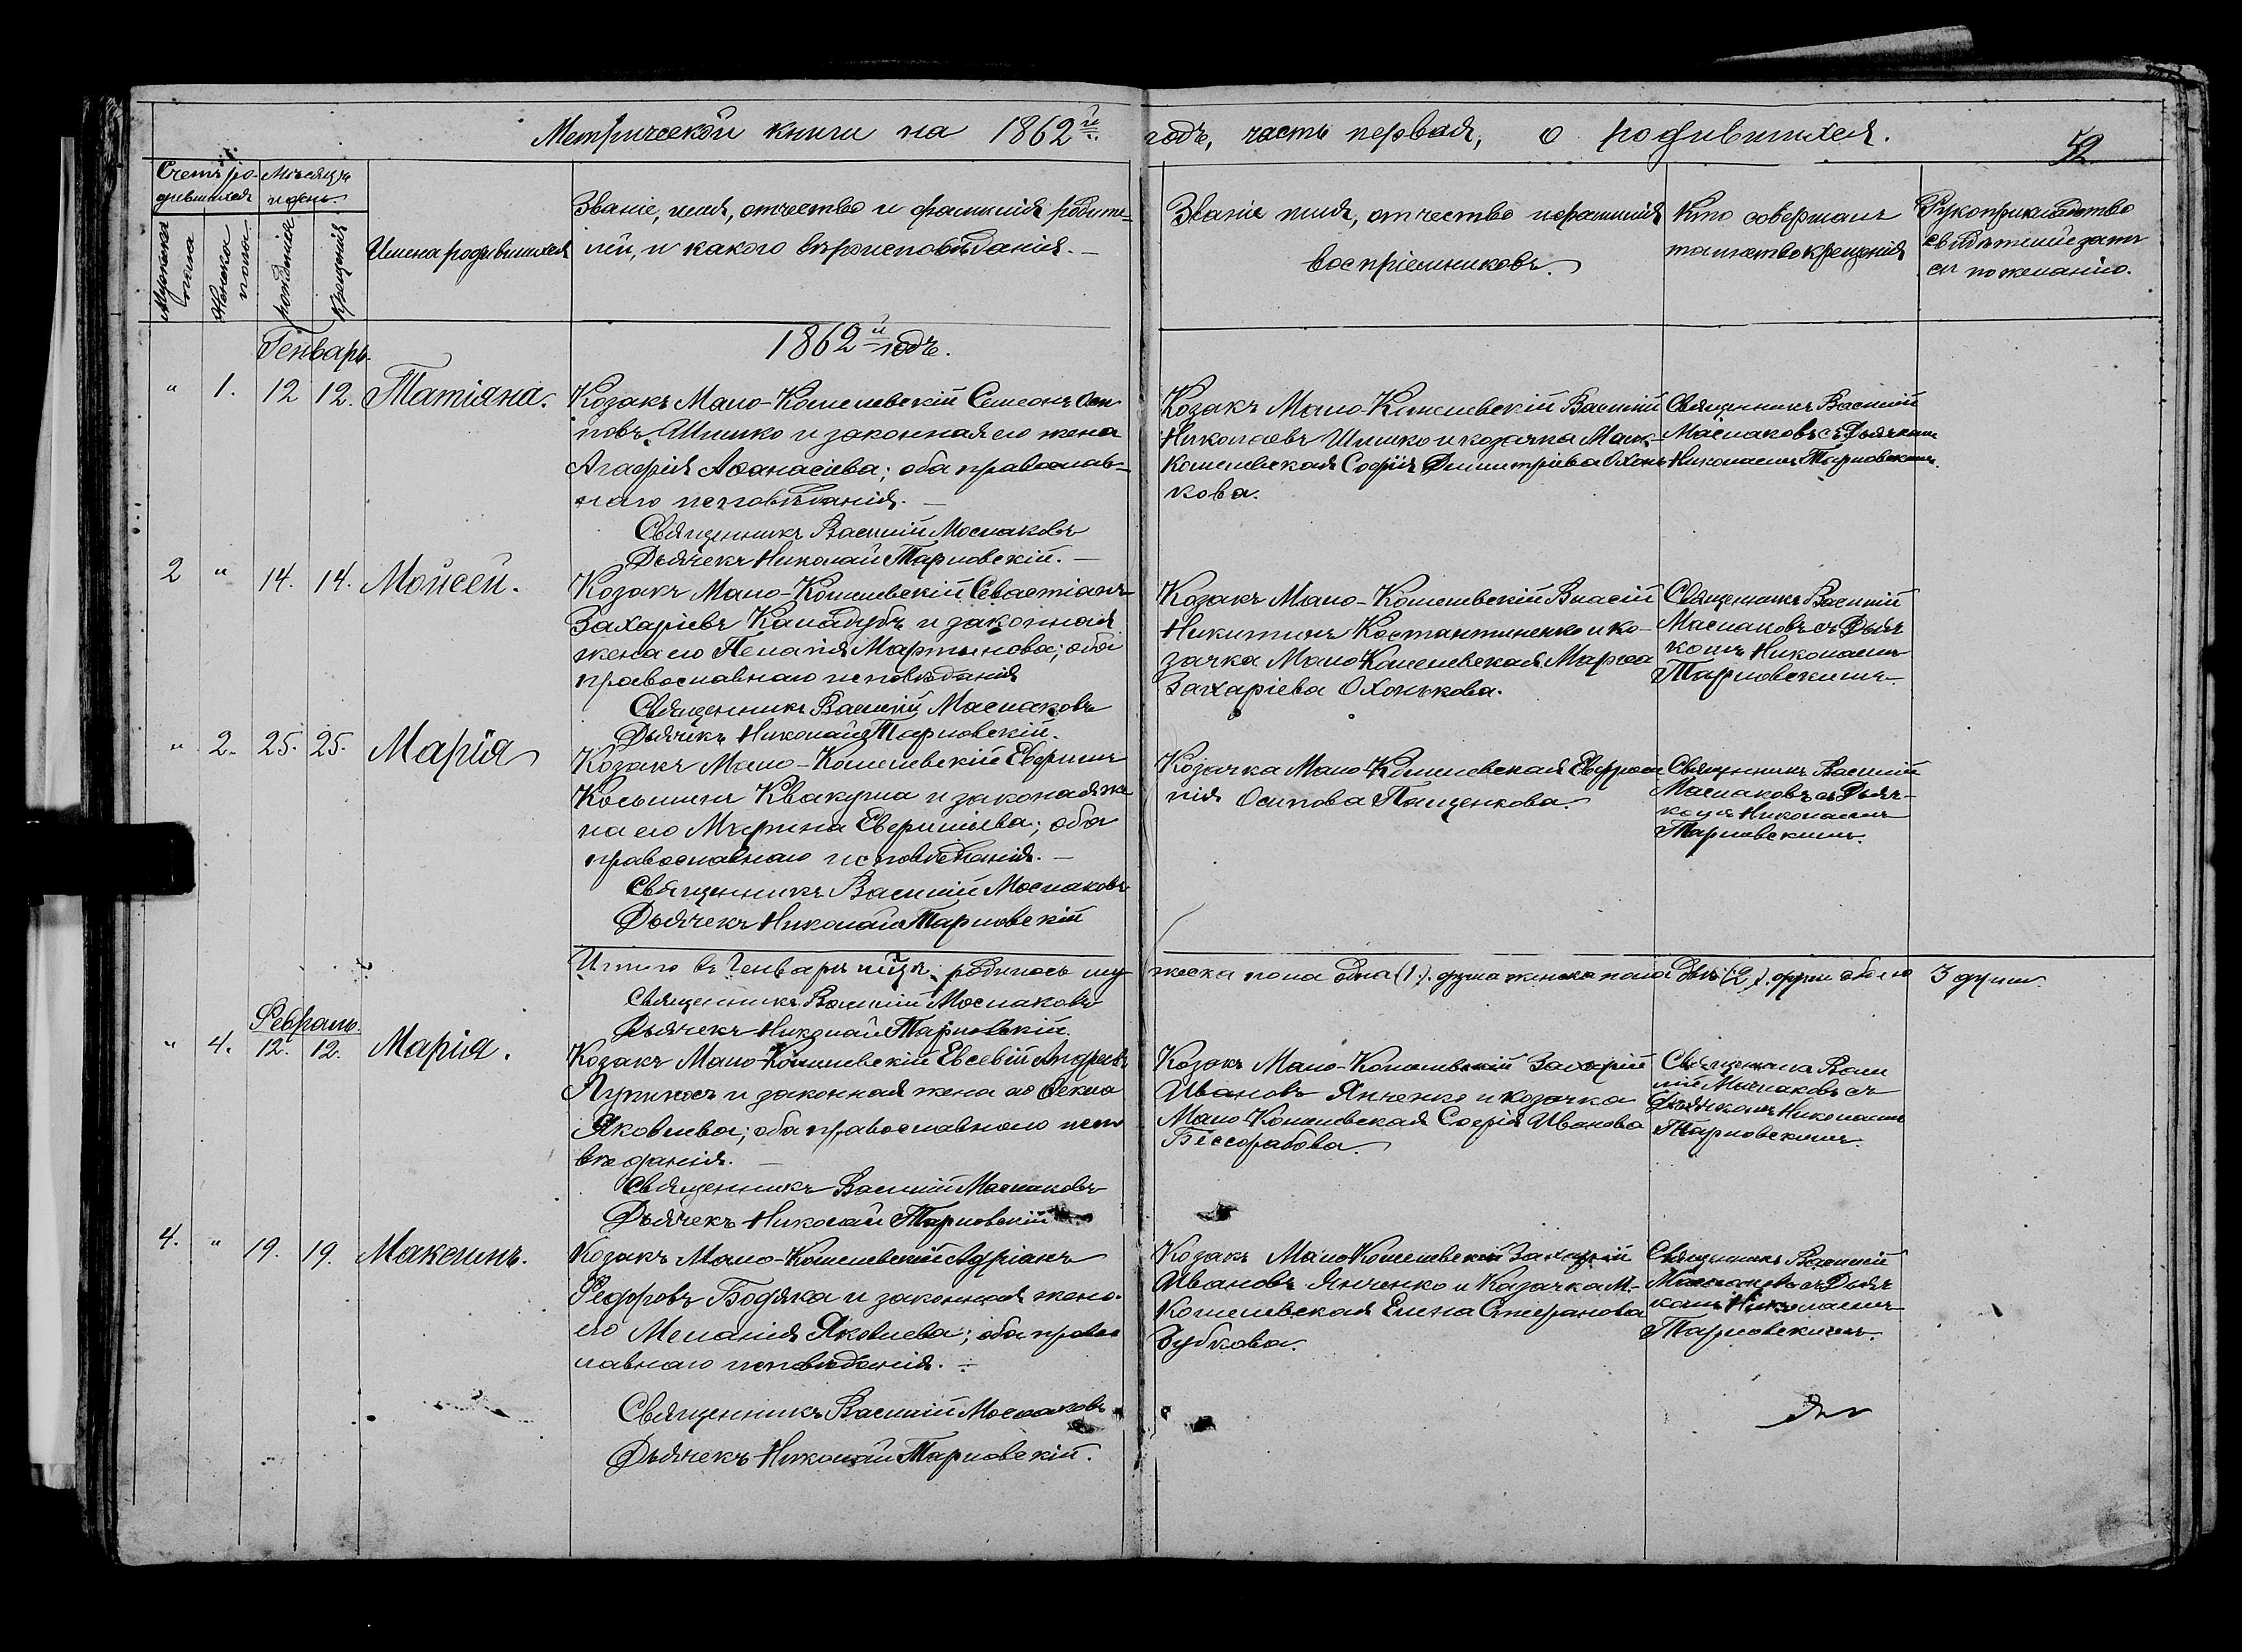 Метрической книги на 1862й годъ, часть первая, о родившихся.
52
Счетъ ро-
дившихся
Мужеска
пола
Женска
пола
Мѣсяцъ
и день
рожденія
крещенія
Имена родившихся
Званіе, имя, отчество и фамилія родите-
лей, и какого вѣроисповѣданія.
Званіе имя, отчество и фамилія
воспріемниковъ.
Кто совершалъ
таинство крещенія
Рукоприкладство
свидѣтелей запи
си по желанію.
Генварь.
1862й годъ.
" 1. 12 12. Татіяна.
Козакъ Мало-Кошелевскій Симеонъ Оси
повъ Шишко и законная его жена
Агафія Аѳанасіева; оба православ-
наго исповѣданія.
Священникъ Василій Маслаковъ
Дьячекъ Николай Тарновскій.
Козакъ Мало-Кошелевскій Василій
Николаевъ Шишко и козачка Мало-
кошелевская Софія Димитріева Охонь
кова.
Священникъ Василій
Маслаковъ съ Дьячкомъ
Николаемъ Тарновскимъ.
2 " 14. 14. Мойсей.
Козакъ Мало-Кошелевскій Севастіанъ
Захаріевъ Каладубъ и законная
жена его Пелагія Мартынова; оба
православнаго исповѣданія
Священникъ Василій Маслаковъ
Дьячекъ Николай Тарновскій.
Козакъ Мало-Кошелевскій Власій
Никитинъ Костантиненко и ко-
зачка Мало Кошелевская Марѳа
Захаріева Охонькова.
Священникъ Василій
Маслаковъ съ Дьяч
комъ Николаемъ
Тарновскимъ.
" 2. 25. 25. Марія
Козакъ Мало-Кошелевскій Евфимъ
Косьминъ Квакуша и законая же
на его Марина Евфиміева; оба
православнаго исповѣданія.
Священникъ Василій Маслаковъ
Дьячекъ Николай Тарновскій
Козачка Мало Кошелевская Евфроси
нія Осипова Пащенкова.
Священникъ Василій
Маслаковъ съ Дьяч-
комъ Николаемъ
Тарновскимъ.
Итого въ Генварѣ мцѣ, родилось му-
жеска пола одна (1). душа женска пола двѣ (2). души обоего 3 души.
Священникъ Василій Маслаковъ
Дьячекъ Николай Тарновскій.
Февраль.
" 4. 12. 12. Марія.
Козакъ Мало-Кошелевскій Евсевій Андреевъ
и законная жена его Ѳекла
Яковлева; оба православнаго испо
вѣданія.
Священникъ Василій Маслаковъ
Дьячекъ Николай Тарновскій
Козакъ Мало-Кошелевскій Захарій
Ивановъ Янченко и козачка
Мало Кошелевская Софія Иванова
Бессарабова.
Священникъ Васи
лій Маслаковъ съ
Дьячкомъ Николаемъ
Тарновскимъ.
4. " 19. 19. Максимъ.
Козакъ Мало-Кошелевскій Адріанъ
Федоровъ Бодяка и законная жена
его Меланія Яковлева; оба правос
лавнаго исповѣданія.
Священникъ Василій Маслаковъ
Дьячекъ Николай Тарновскій.
Козакъ Мало Кошелевскій Захарій
Ивановъ Янченко и Казачка М.
Кошелевская Елена Стефанова
Зубкова.
Священникъ Василій
Маслаковъ съ Дьяч
комъ Николаемъ
Тарновскимъ.